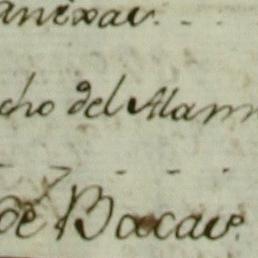 anixav.
cho del Alam
de Bacav.